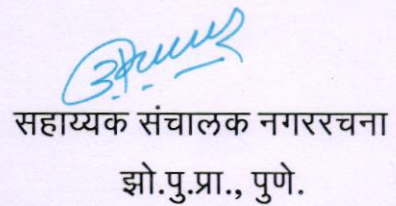 सहाय्यक संचालक नगररचना
झो.पु.प्रा., पुणे.